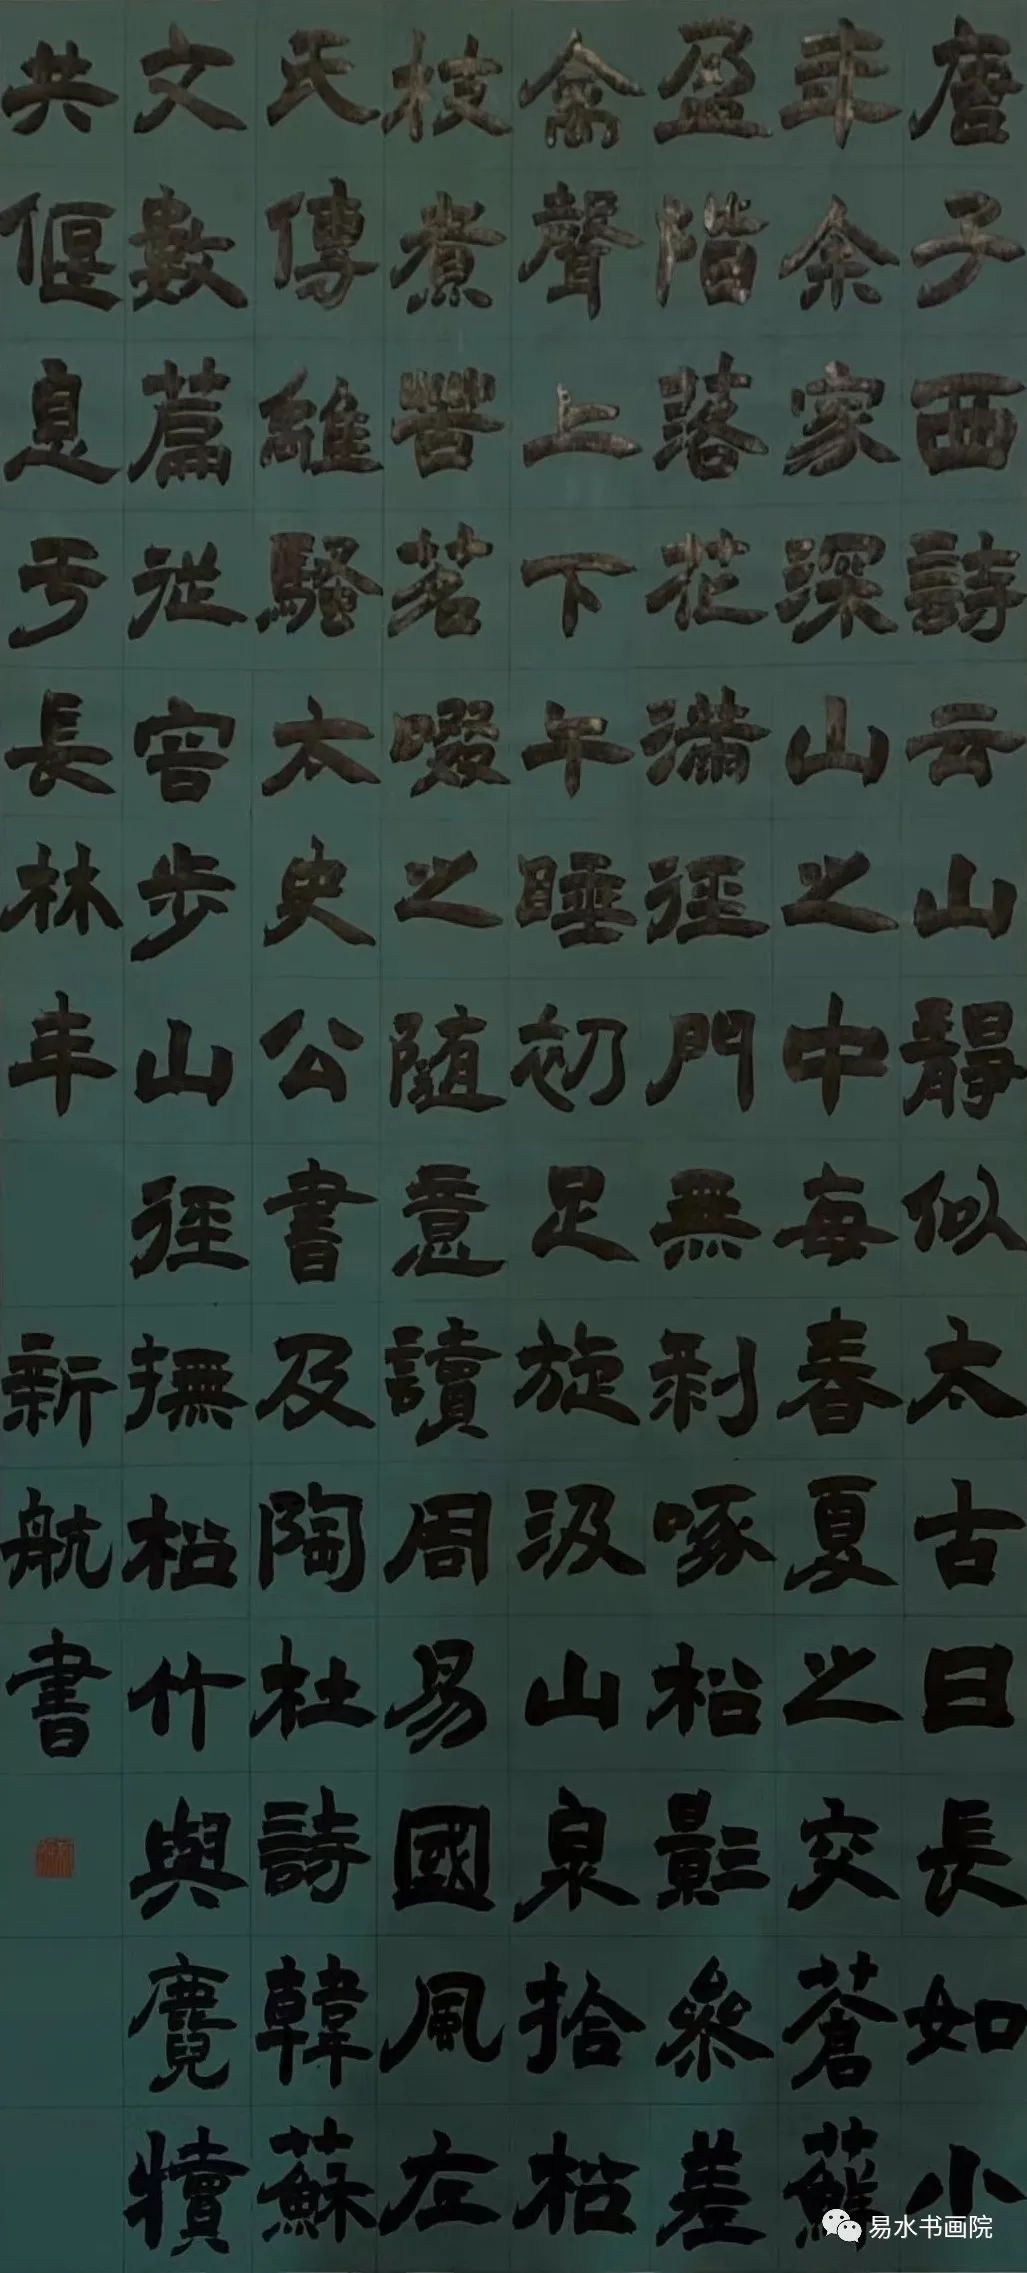 唐子西詩云山靜似太古日長如小
年余家深山之中每春夏之交蒼蘚
盈階落花滿徑門無剥啄松影參差
禽聲上下午睡初足旋汲山泉拾松
枝煮苦茗啜之隨意讀周易國風左
氏傳離騷太史公書及陶杜詩韓蘇
文數篇從容步山徑撫松竹與麛犢
共偃息亐長林丰
新航書
易水书画院